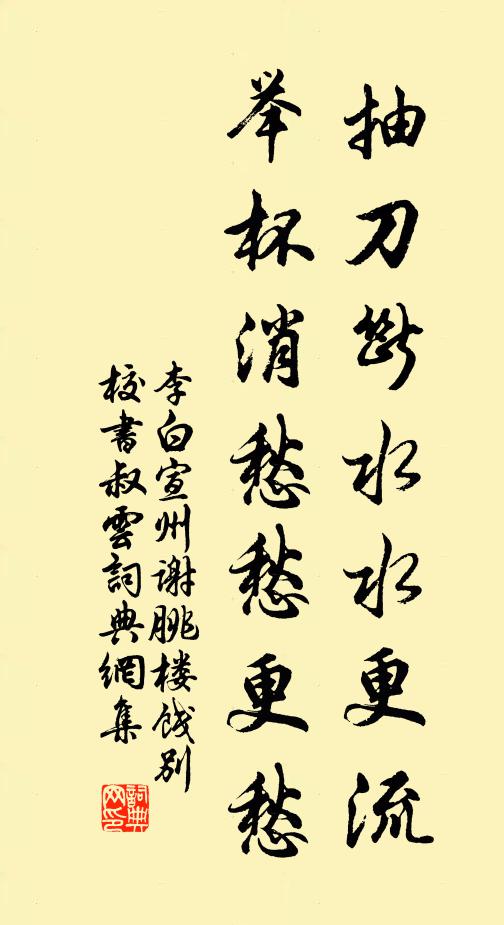 抽刀断水水更流
举杯消愁愁更愁
李白宣州谢朓楼饯别
校書叔雲詞典網集
詞典
网印